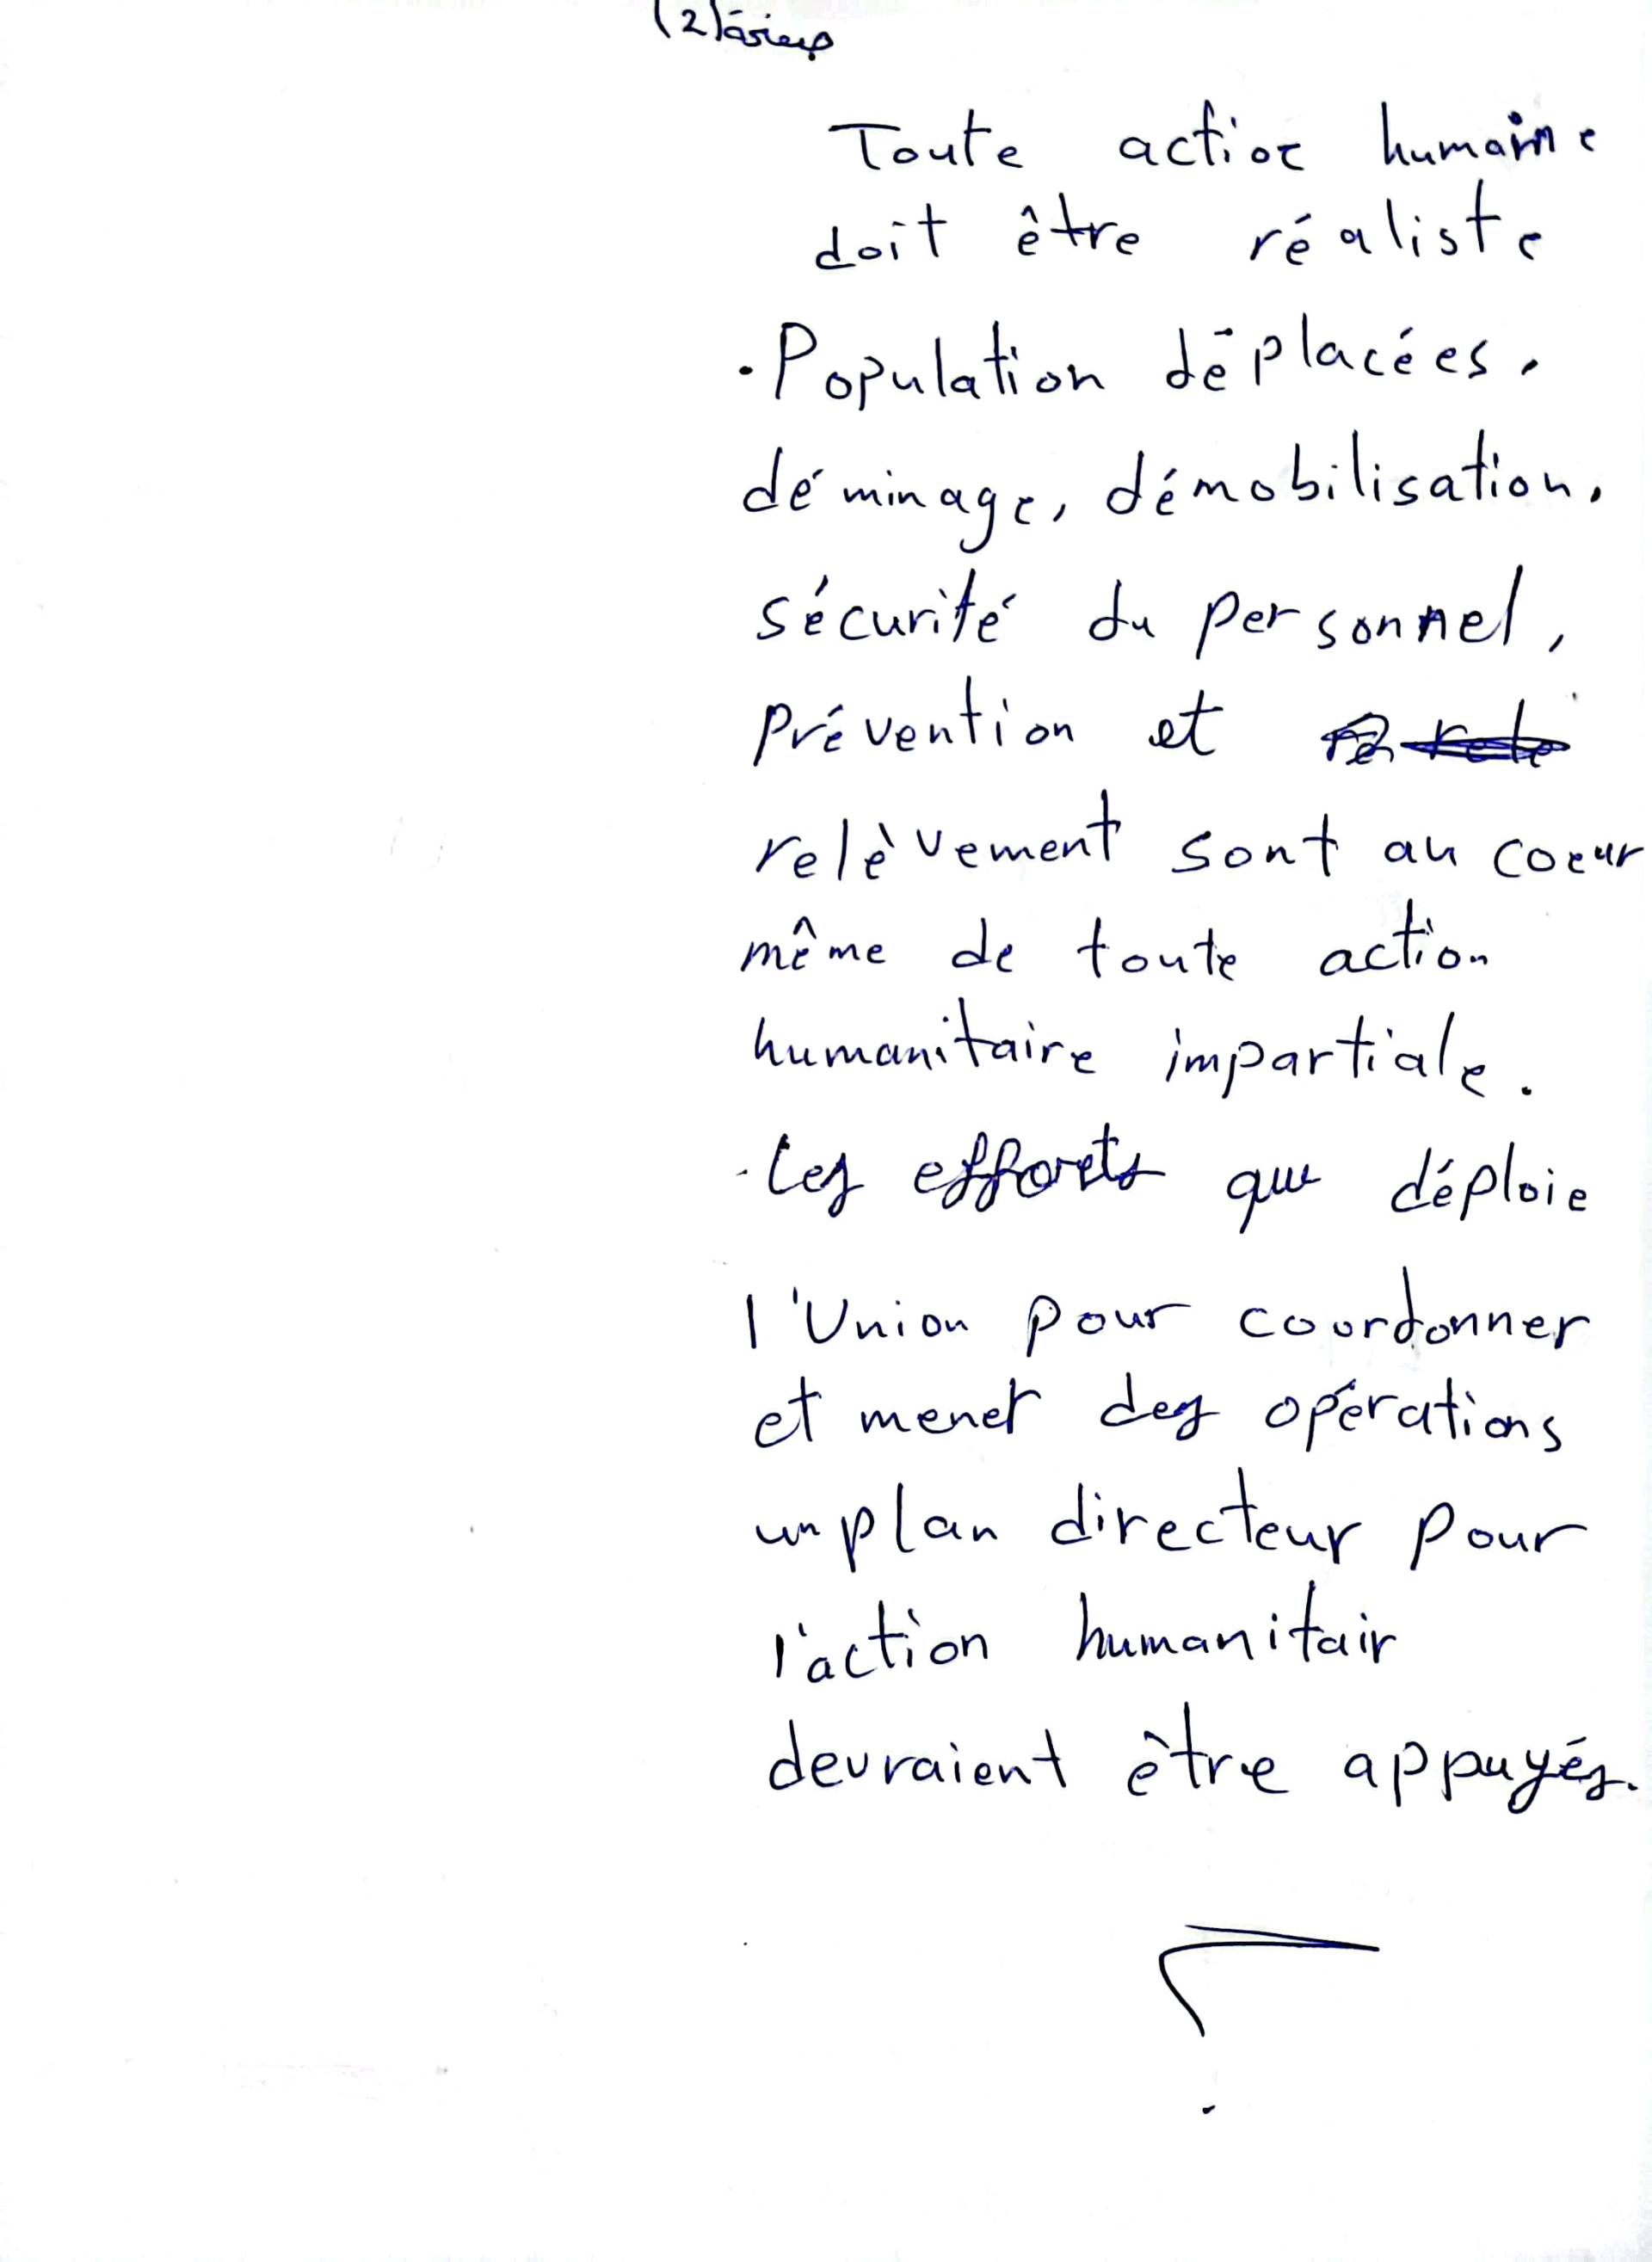 (2)
Toute action humaine
doit être réaliste
. Population déplacées,
déminage, démobilisation,
sécurité du personnel,
prévention et
relèvement sont au coeur
même de toute action
humanitaire impartiale.
. Les efforts que déploie
l'Union pour coordonner
et mener des opérations
un plan directeur pour
l'action humanitair
devraient être appuyés.